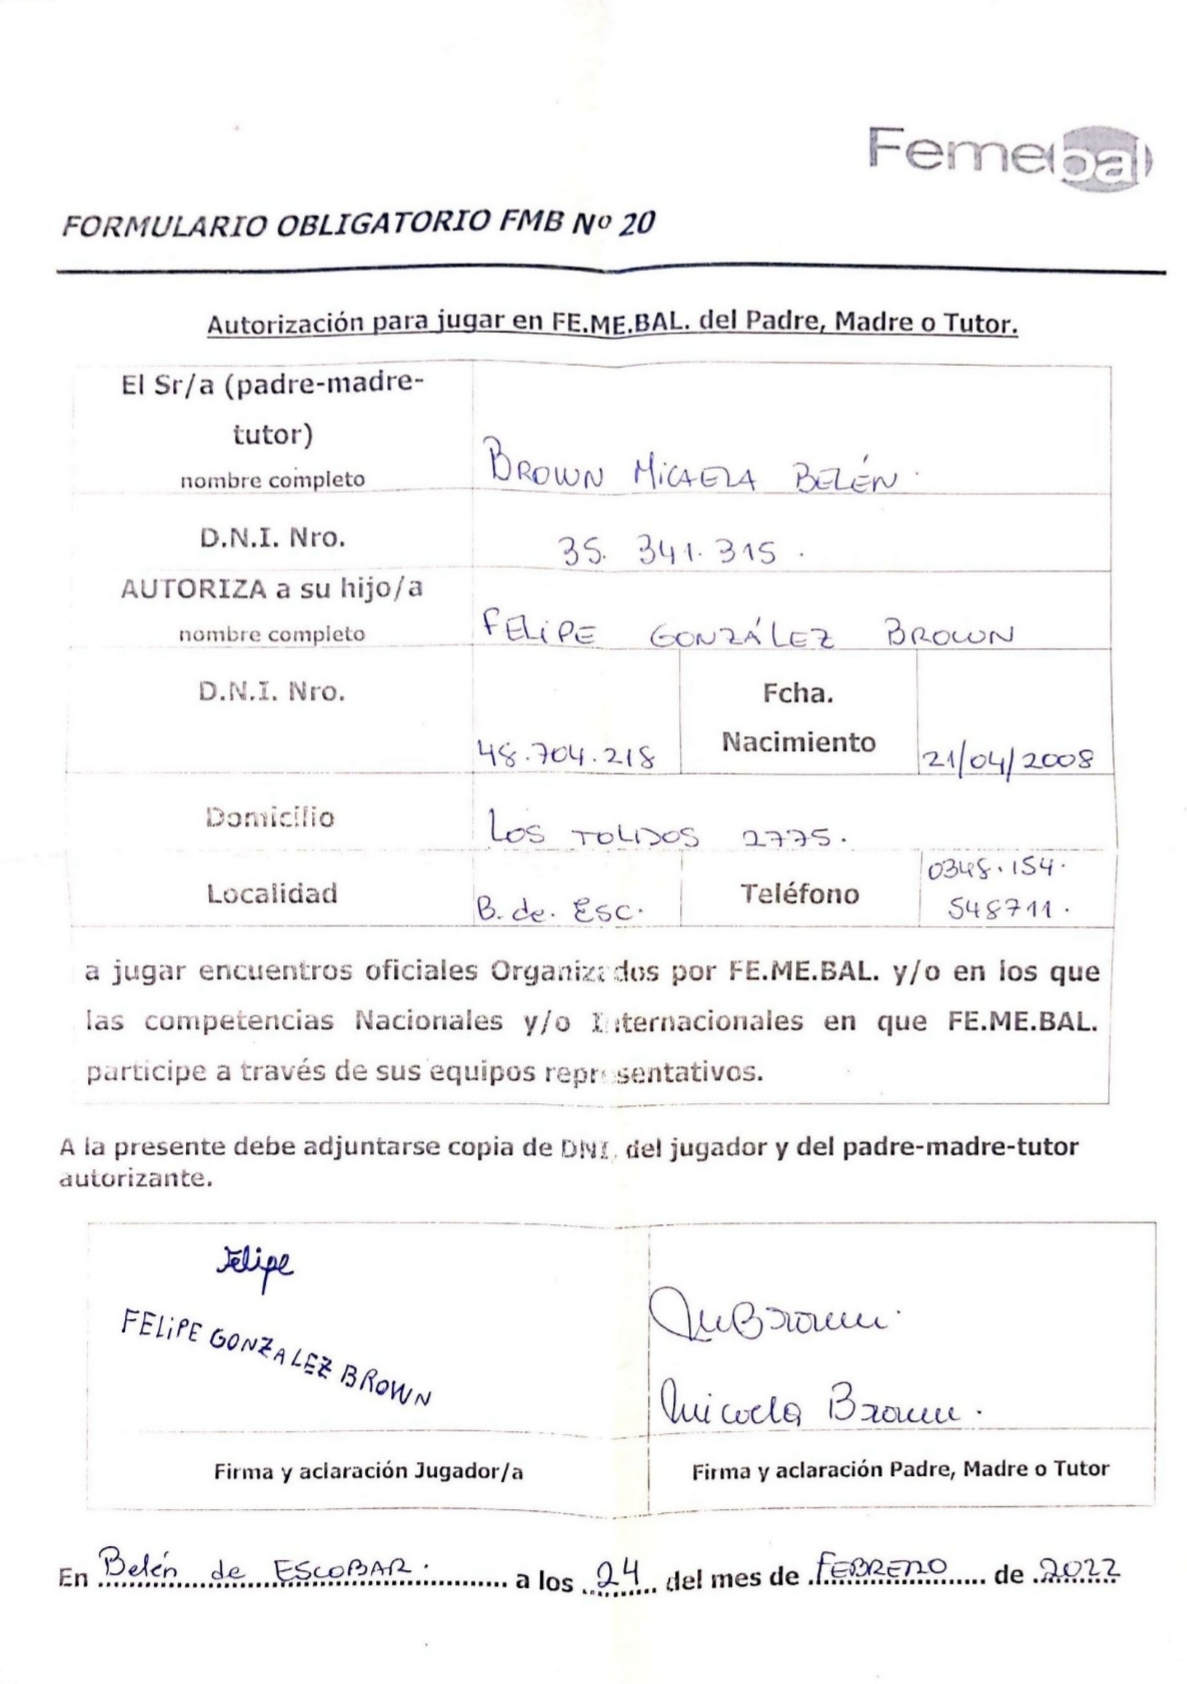 Femebal
FORMULARIO OBLIGATORIO FMB Nº 20
Autorización para jugar en FE.ME.BAL. del Padre, Madre o Tutor.
El Sr/a (padre-madre-
tutor)
nombre completo
BROWN MICAELA BELÉN.
D.N.I. Nro.
35. 341. 315.
AUTORIZA a su hijo/a
nombre completo
FELIPE GONZÁLEZ BROWN
D.N.I. Nro.
48.704.218
Fcha.
Nacimiento
21/04/2008
Domicilio
LOS TOLDOS 2775.
Localidad
B. de. Esc.
Teléfono
0348.154.
548711.
a jugar encuentros oficiales Organizados por FE.ME.BAL. y/o en los que
las competencias Nacionales y/o Internacionales en que FE.ME.BAL.
participe a través de sus equipos representativos.
A la presente debe adjuntarse copia de DNI. del jugador y del padre-madre-tutor
autorizante.
Felipe
FELIPE GONZALEZ BROWN
MBrown.
Micaela Brown.
Firma y aclaración Jugador/a
Firma y aclaración Padre, Madre o Tutor
En Belén de ESCOBAR. a los 24 del mes de FEBRERO de 2022